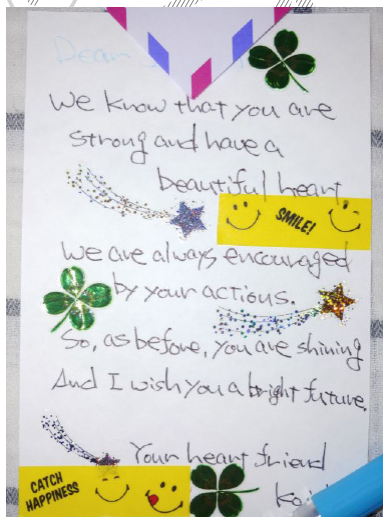 Dear
We know that you are
strong and have a
beautiful heart
SMILE!
We are always encouraged
by your actions.
So, as before, you are shining
And I wish you a bright future.
Your heart friend
CATCH
HAPPINESS